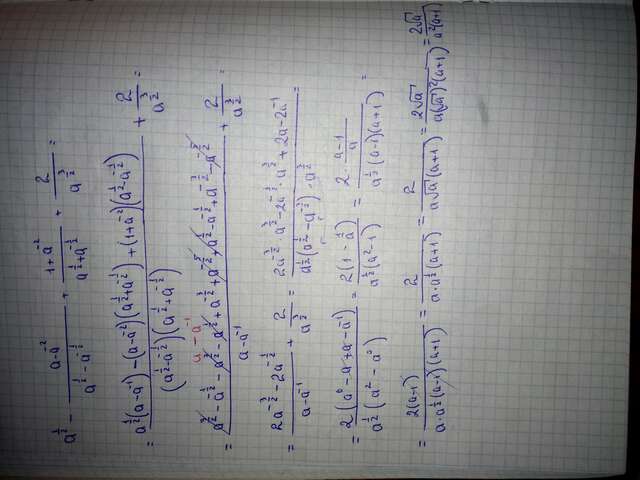 a^{1/2} - \frac{a-a^{-2}}{a^{1/2}-a^{-1/2}} + \frac{1+a^{-2}}{a^{1/2}+a^{-1/2}} + \frac{2}{a^{3/2}} =
= \frac{a^{1/2}(a-a^{-1}) - (a-a^{-2})(a^{1/2}+a^{-1/2}) + (1+a^{-2})(a^{1/2}-a^{-1/2})}{(a^{1/2}-a^{-1/2})(a^{1/2}+a^{-1/2})} + \frac{2}{a^{3/2}} =
a-a^{-1}
= \frac{a^{3/2}-a^{-1/2}-a^{3/2}-a^{1/2}+a^{-3/2}+a^{-5/2}+a^{1/2}-a^{-1/2}+a^{-3/2}-a^{-5/2}}{a-a^{-1}} + \frac{2}{a^{3/2}} =
= \frac{2a^{-3/2}-2a^{-1/2}}{a-a^{-1}} + \frac{2}{a^{3/2}} =
= \frac{2(a^{0}-a+a-a^{-1})}{a^{1/2}(a^{2}-a^{0})} = \frac{2(1-\frac{1}{a})}{a^{1/2}(a^{2}-1)} = \frac{2\cdot\frac{a-1}{a}}{a^{1/2}(a-1)(a+1)} =
= \frac{2(a-1)}{a\cdot a^{1/2}(a-1)(a+1)} = \frac{2}{a\cdot a^{1/2}(a+1)} = \frac{2}{a\sqrt{a}(a+1)} = \frac{2\sqrt{a}}{a(\sqrt{a})^{2}(a+1)} = \frac{2\sqrt{a}}{a^{2}(a+1)}